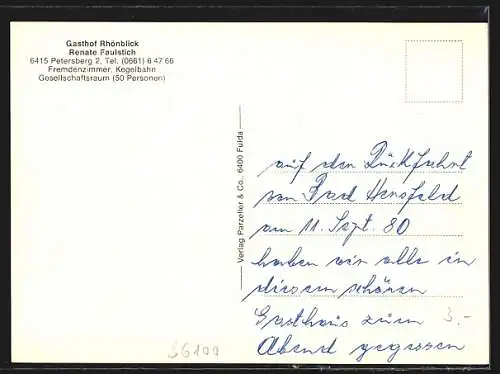 Gasthof Rhönblick
Renate Faulstich
6415 Petersberg 2, Tel. (0661) 6 47 66
Fremdenzimmer, Kegelbahn
Gesellschaftsraum (50 Personen)
Verlag Parzeller & Co., 6400 Fulda
auf den Rückfahrt
von Bad Hersfeld
am 11. Sept. 80
haben wir alle in
diesem schönen
Gasthaus zum
Abend gegessen
3.-
36100